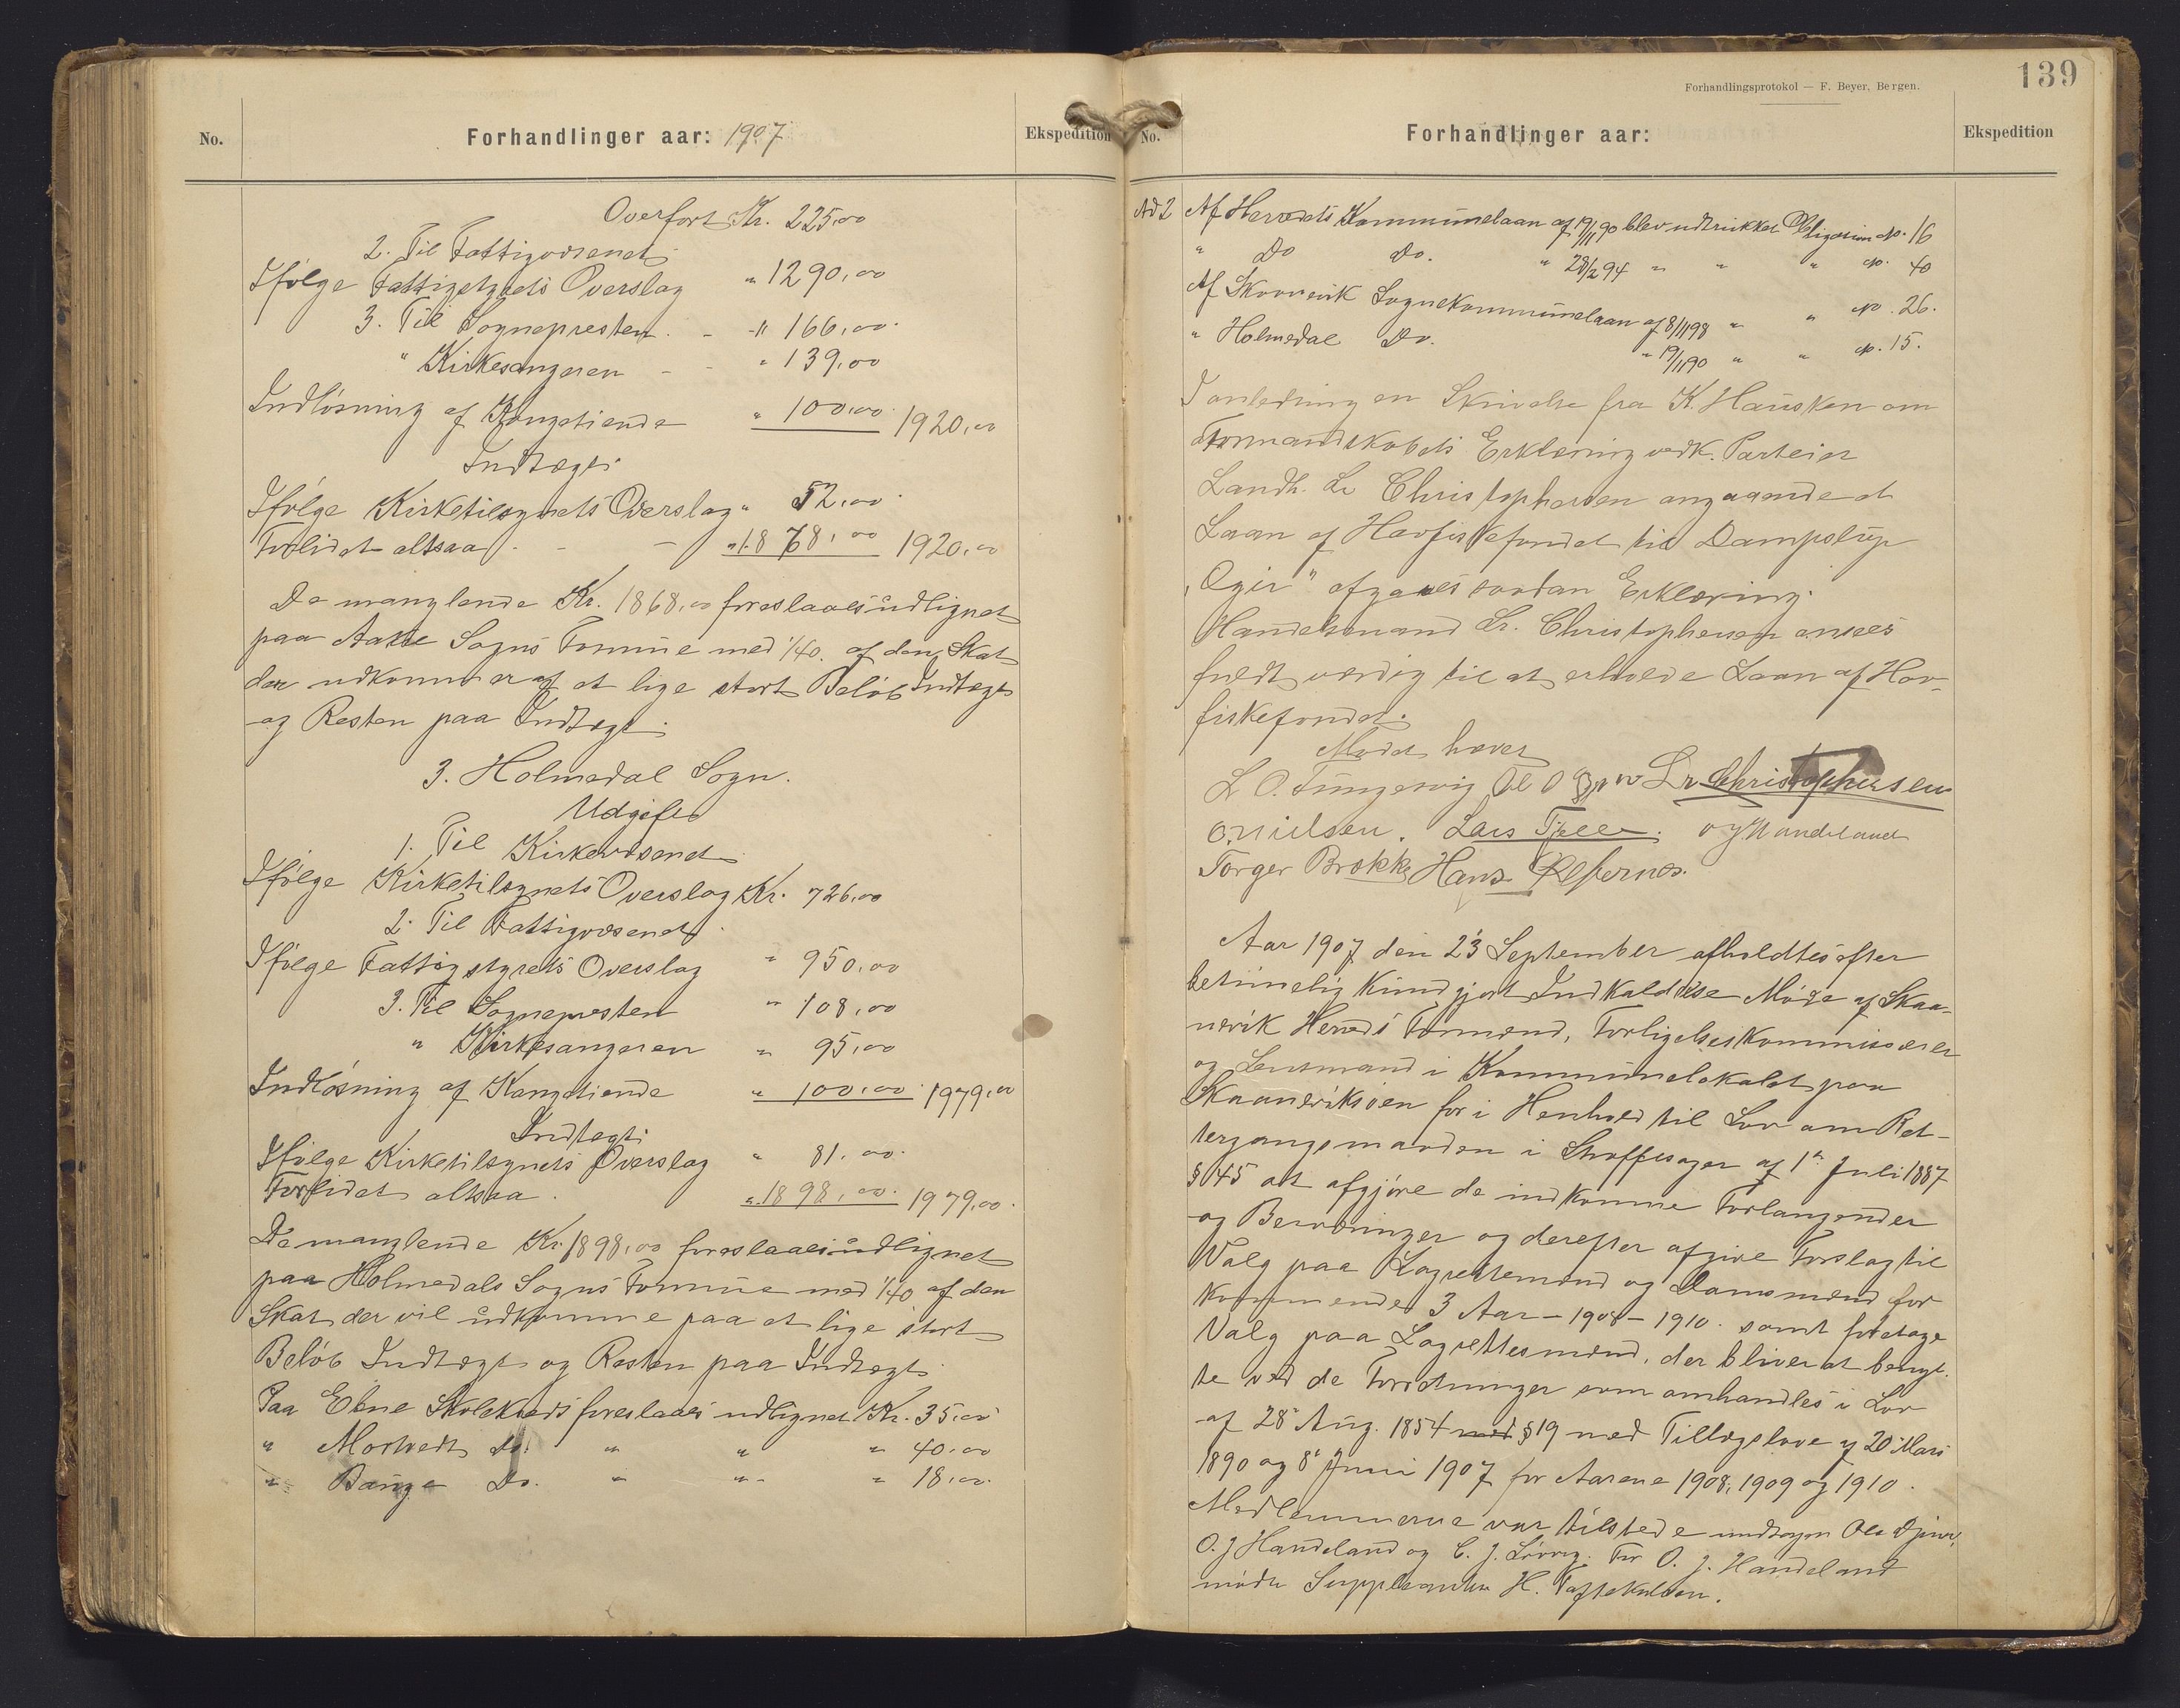 No.
Forhandlinger aar: 1907
Ekspedition
Overført Kr. 225,00
2. Til Fattigvæsenet
Ifølge Fattigstyrets Overslag " 1290,00
3. Til Sognepresten - " 166,00
" Kirkesangeren - - " 139,00
Indløsning af Kongetiende " 100,00 1920,00
Indtægt
Ifølge Kirketilsynets Overslag " 52,00
Forlidet altsaa - - " 1868,00 1920,00
De manglende Kr. 1868,00 foreslaaes udlignet
paa Aakre Sogns Formue med 1/40 af den Skat
der udkommer af et lige stort Beløb Indtægt
og Resten paa Indtægt.
3. Holmedal Sogn.
Udgift
1. Til Kirkevæsenet
Ifølge Kirketilsynets Overslag Kr. 726,00
2. Til Fattigvæsenet
Ifølge Fattigstyrets Overslag " 950,00
3. Til Sognepresten " 108,00
" Kirkesangeren " 95,00
Indløsning af Kongetiende " 100,00 1979,00
Indtægt
Ifølge Kirketilsynets Overslag " 81,00
Forlidet altsaa. " 1898,00 1979,00
De manglende Kr. 1898,00 foreslaaes udlignet
paa Holmedals Sogns Formue med 1/40 af den
Skat der vil udkomme paa et lige stort
Beløb Indtægt og Resten paa Indtægt
Paa Ebne Skolekreds foreslaaes udlignet Kr. 35,00
" Mortvedt Do. " " " 40,00
" Bauge Do. " " " 18,00
Forhandlingsprotokol — F. Beyer, Bergen.
139
No.
Forhandlinger aar:
Ekspedition
Ad 2 Af Herredets Kommunelaan af 19/11 90 blev udtrukket Obligation No. 16
" Do Do. " 28/2 94 " " " No. 40
Af Skaanevik Sognekommunelaan af 8/11 98 " " No. 26.
" Holmedal Do. " 19/11 90 " " No. 15.
I anledning en Skrivelse fra K. Hausken om
Formandskabets Erklæring vedk. Parteier
Landh. Lr Christophersen angaaende et
Laan af Havfiskefondet til Dampskip
"Ægir" afgaves saadan Erklæring.
Handelsmand Lr. Christophersen ansees
fuldt værdig til at erholde Laan af Hav-
fiskefondet.
Mødet hævet
L O. Tungesvig Ole O Lr Christophersen
O. Nielsen. Lars Tjelle. O J Handeland
Torger Brække Hans Ølfernes.
Aar 1907 den 23 September afholdtes efter
betimelig kundgjort Indkaldelse Møde af Skaa-
nevik Herreds Formænd, Forligelseskommissærer
og Lensmand i Kommunelokalet paa
Skaaneviksøen for i Henhold til Lov om Ret-
tergangsmaaden i Straffesager af 1ste Juli 1887
§ 45 at afgjøre de indkomne Forlangender
og Berøringer og derefter afgive Forslag til
Valg paa Lagrettemænd og Domsmænd for
kommende 3 Aar - 1908 - 1910. samt foretage
Valg paa Lagrettesmænd, der bliver at benyt-
te ved de Forretninger som omhandles i Lov
af 28' Aug. 1854 med § 19 med Tillægslove af 20' Mars
1890 og 8' Juni 1907 for Aarene 1908, 1909 og 1910.
Medlemmerne var tilstede undtagen Ole
O. J Handeland og C. J. For O. J. Handeland
mødte Suppleanten H.